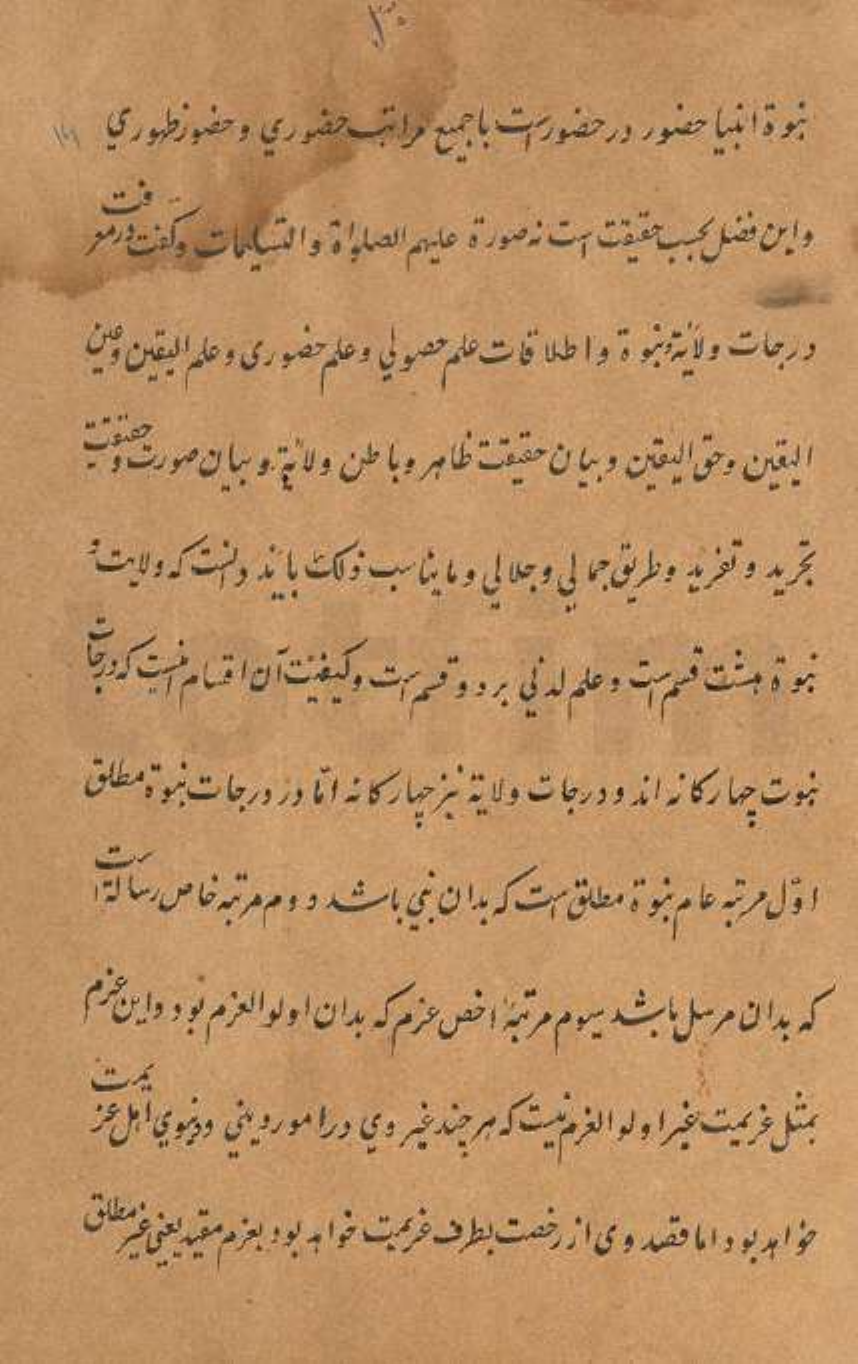 نبوة انبیا حضور در حضور است با جمیع مراتب حضوري و حضور ظهوري
و این فضل بحسب حقیقت است نه صورة علیهم الصلواة و التسلیمات و گفت در معرفت
درجات ولایة و نبوة و اطلاقات علم حصولي و علم حضوری و علم الیقین و عین
الیقین و حق الیقین و بیان حقیقت ظاهر و باطن ولایة و بیان صورت و حقیقت
تجرید و تفرید و طریق جمالي و جلالي و ما یناسب ذلک باید دانست که ولایت و
نبوة هشت قسم است و علم لدني بر دو قسم است و کیفیت آن اقسام اینست که درجات
نبوت چهارکانه اند و درجات ولایة نیز چهارکانه امّا در درجات نبوة مطلق
اوّل مرتبه عام نبوة مطلق است که بدان نبي باشد دوم مرتبه خاص رسالة است
که بدان مرسل باشد سیوم مرتبهٔ اخص عزم که بدان اولوالعزم بود و این عزم
بمثل عزیمت غیر اولوالعزم نیست که هر چند غیر وي در امور دیني و دنیوي اهل عزیمت
خواهد بود اما قصد وی از رخصت بطرف عزیمت خواهد بود بعزم مقید یعني غیر مطلق